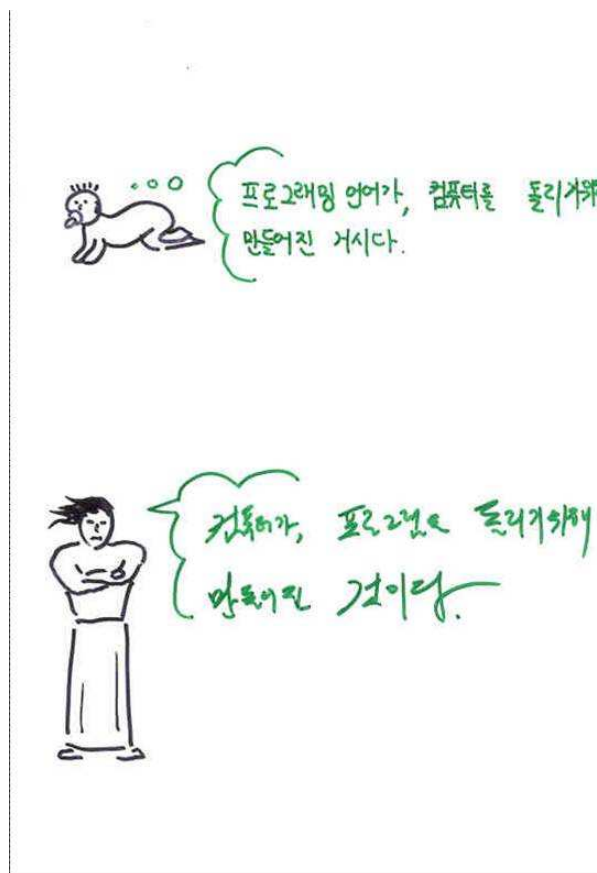 프로그래밍 언어가, 컴퓨터를 돌리기위
만들어진 거시다.
컴퓨터가, 프로그램을 돌리기위해
만들어진 것이다.